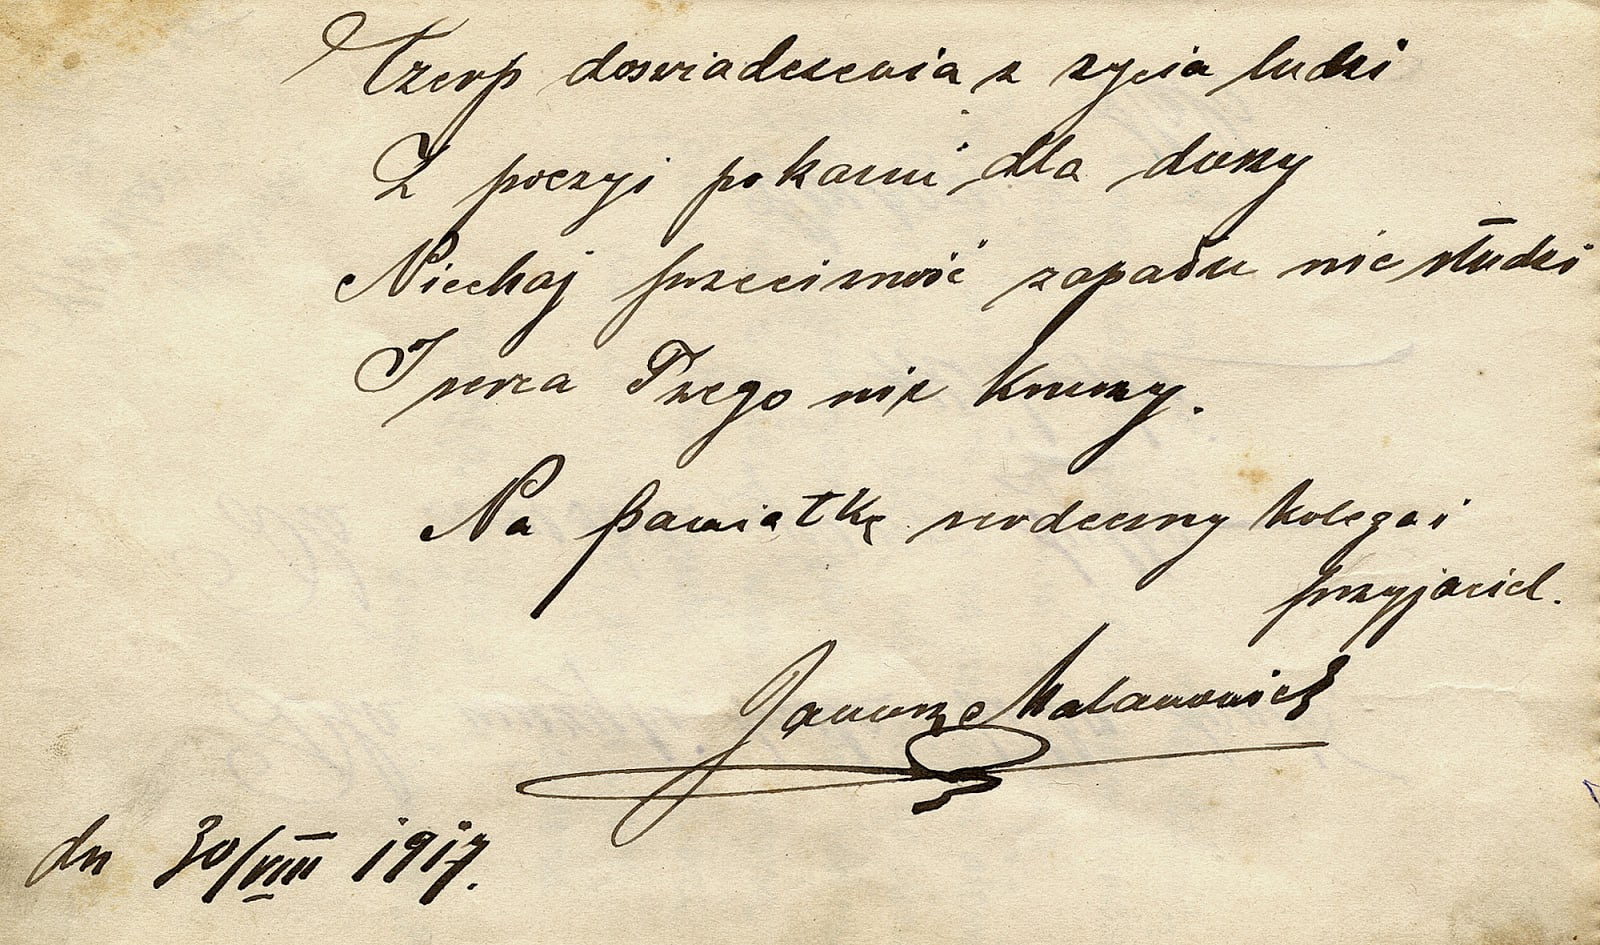 Czerp doswiadczenia z zycia ludzi
Z poezyi pokarm dla duszy
Niechaj przeciwność zapału nie studzi
I serca Twego nie kruszy.
Na pamiątkę serdeczny kolega i
przyjaciel.
Janusz
dn 30/VIII 1917.